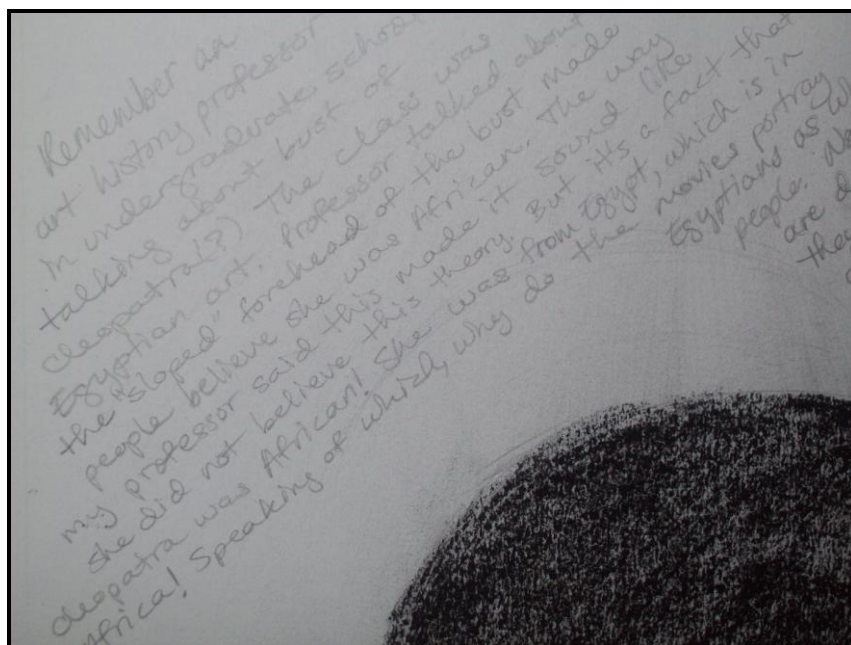 Remember an
art history professor
in undergraduate school
talking about bust of
cleopatra(?) The class was
Egyptian art. Professor talked about
the "sloped" forehead of the bust made
people believe she was African. The way
my professor said this made it sound like
she did not believe this theory. But it's a fact that
cleopatra was African! She was from Egypt, which is in
Africa! Speaking of which, why do the movies portray
Egyptians as
people.
are